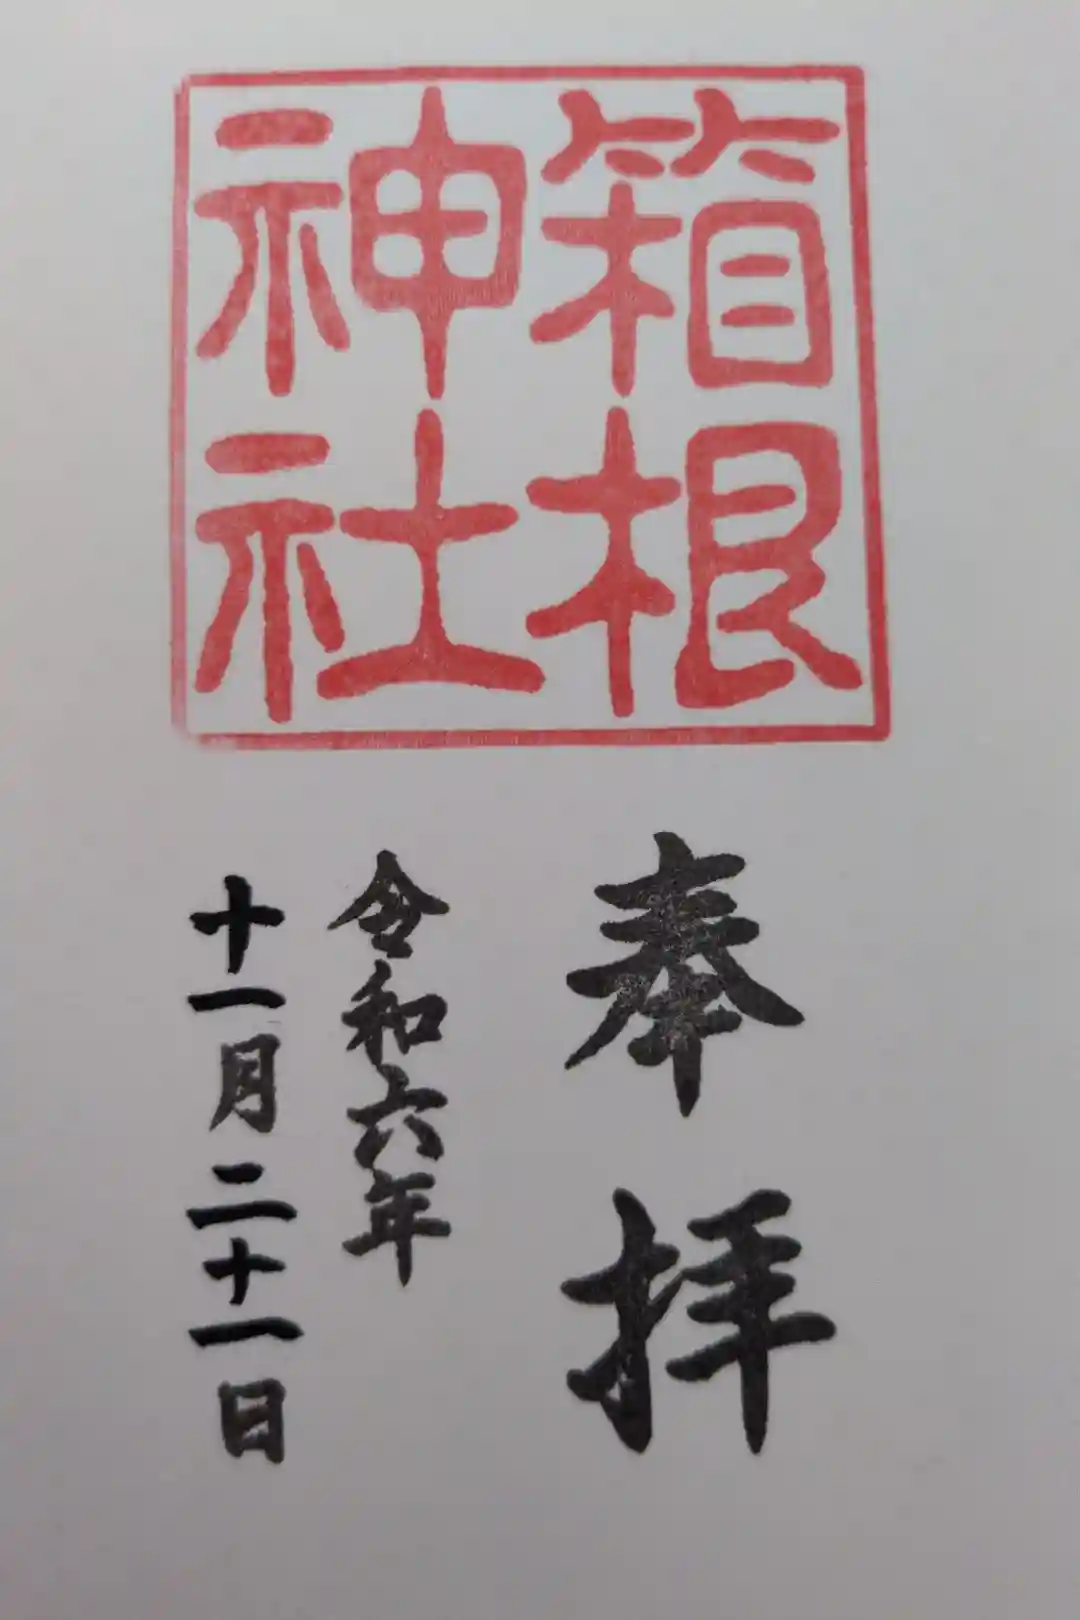 箱根
神社
奉拝
令和六年
十一月二十一日